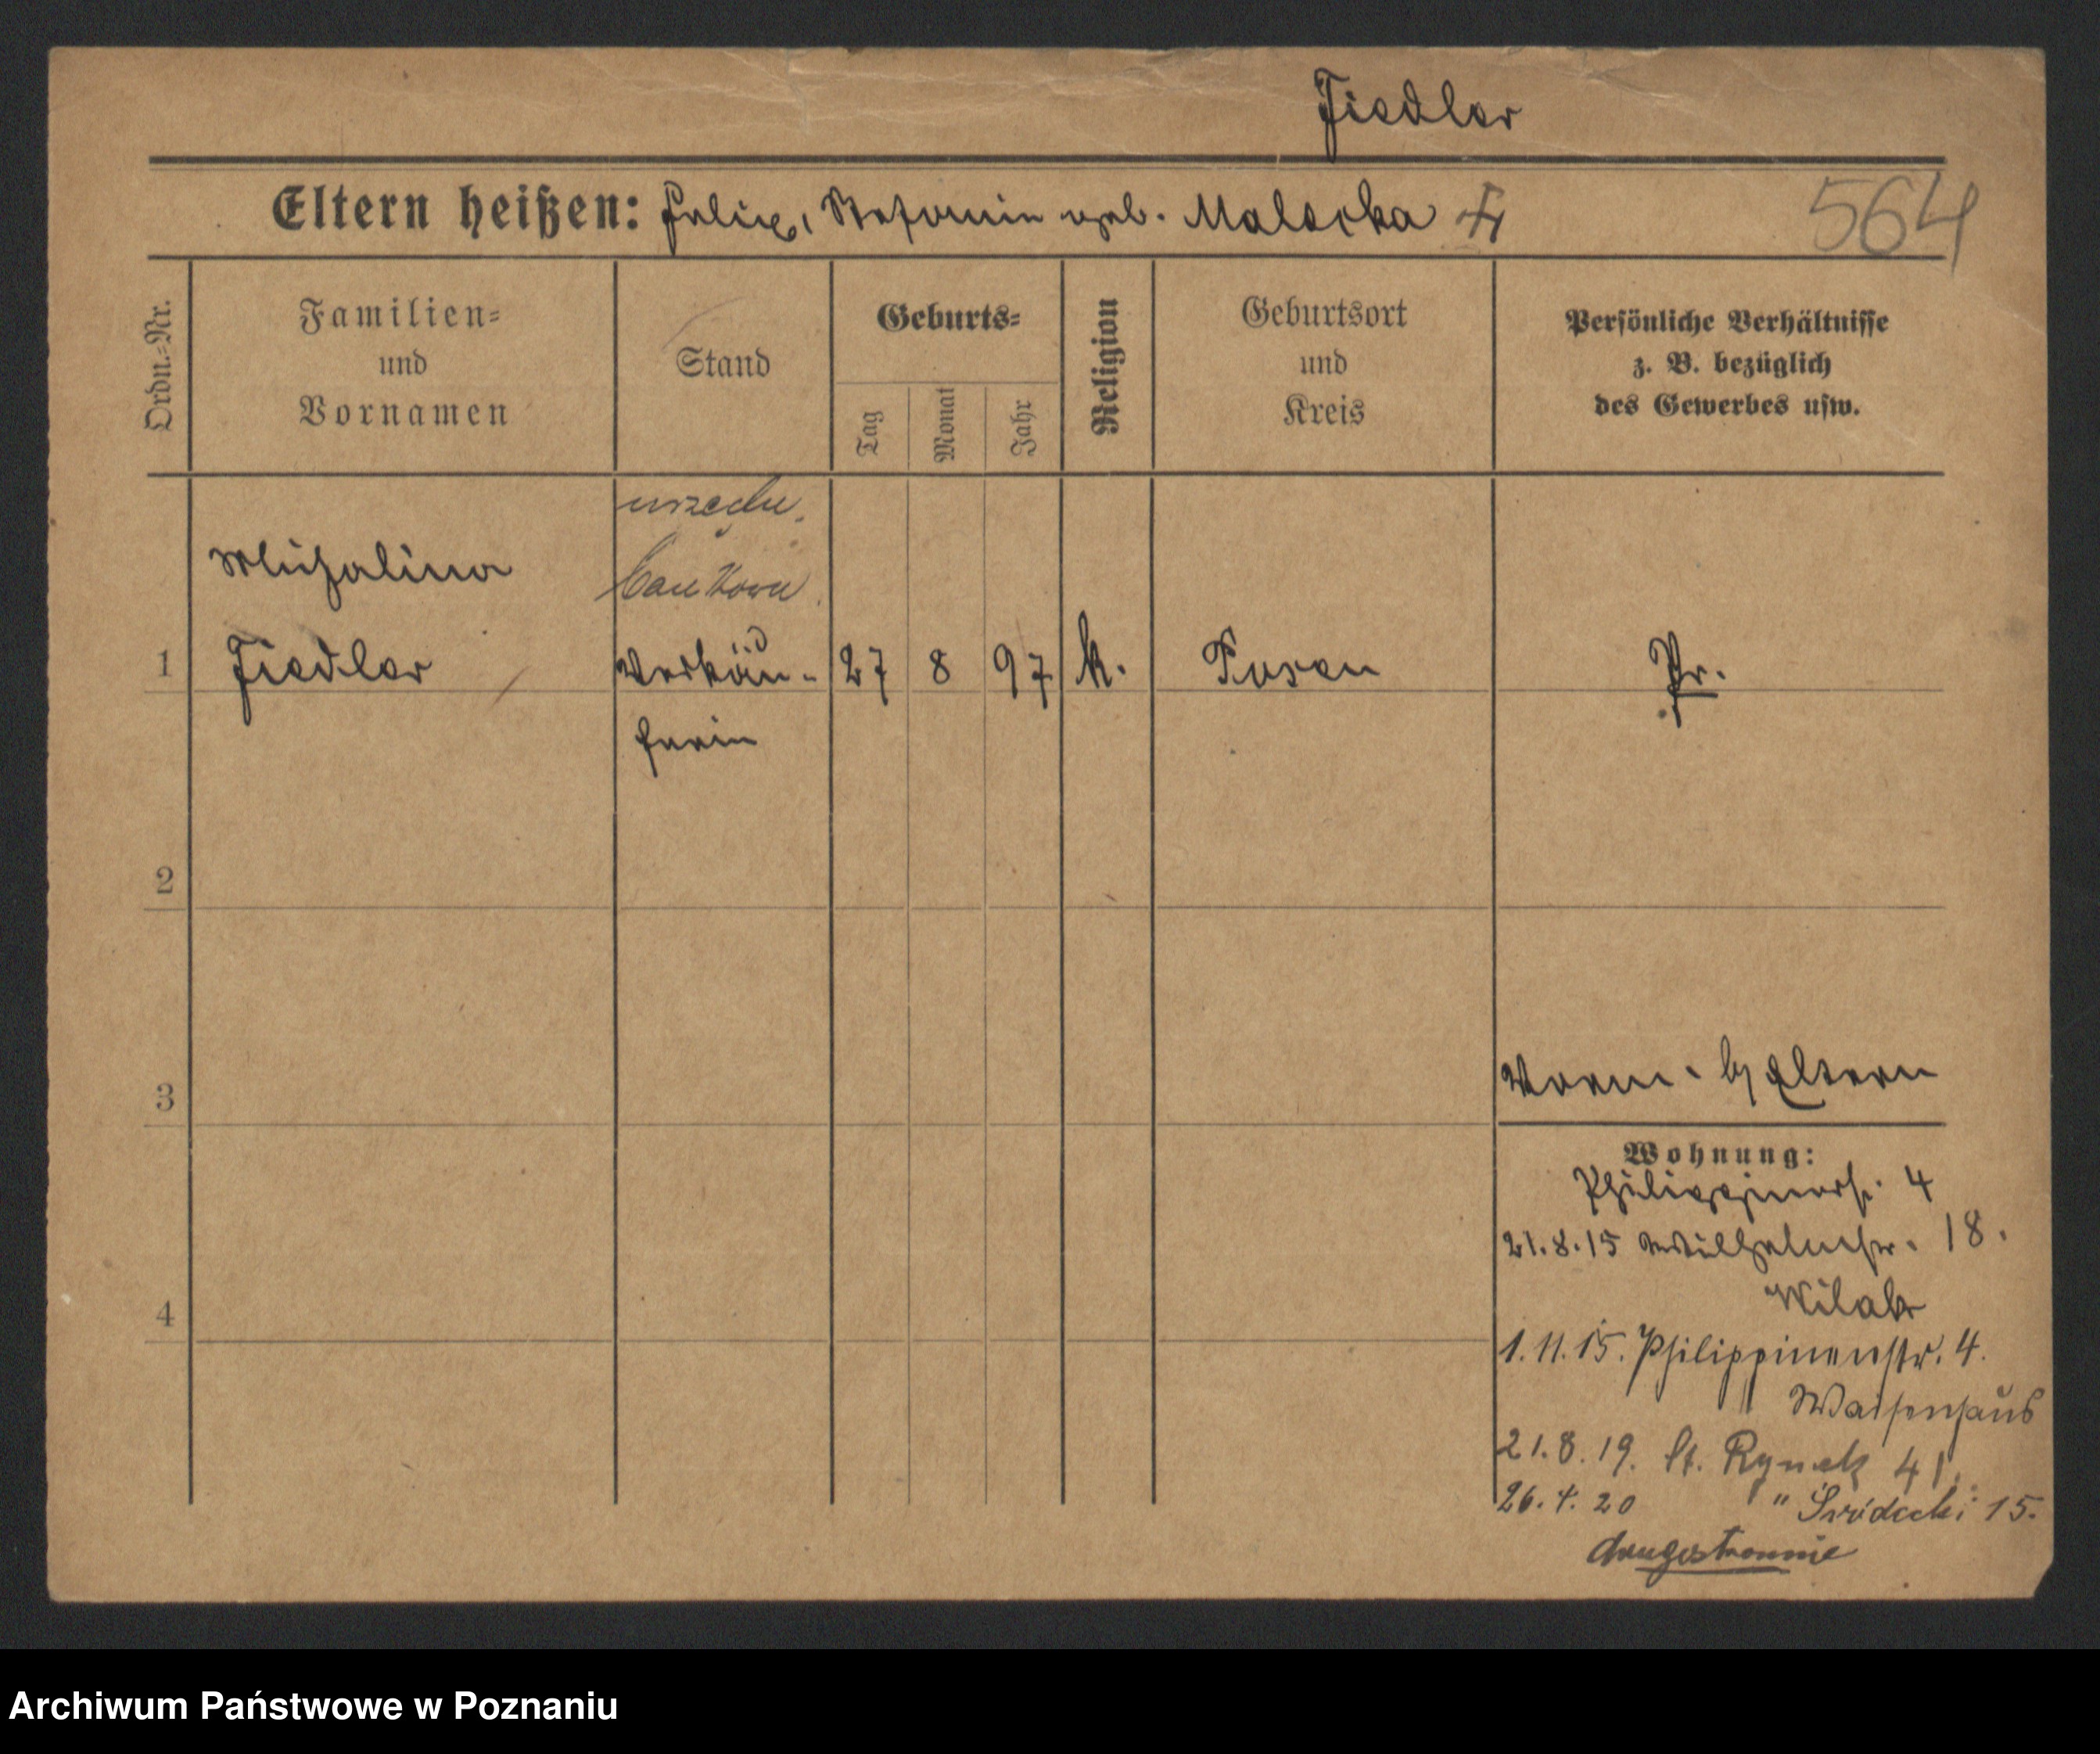 Fiedler
Eltern heißen: Felix, Stefanie geb. Malecka
564
Ordn.=Nr.
Familien=
und
Vornamen
Stand
Geburts=
Tag
Monat
Jahr
Religion
Geburtsort
und
Kreis
Persönliche Verhältnisse
z. B. bezüglich
des Gewerbes usw.
urzędn.
bankow.
Michalina
1 Fiedler Verkäu- 27 8 97 k. Posen Pr.
ferin
2
3
Vorm. b/ Eltern
Wohnung:
Philippinenstr. 4
21.8.15 Wilhelmstr. 18.
4
1.11.15. Philippinenstr. 4.
Waisenhaus
21.8.19. St. Rynek 41.
26.4.20 " Śródecki 15.
Archiwum Państwowe w Poznaniu